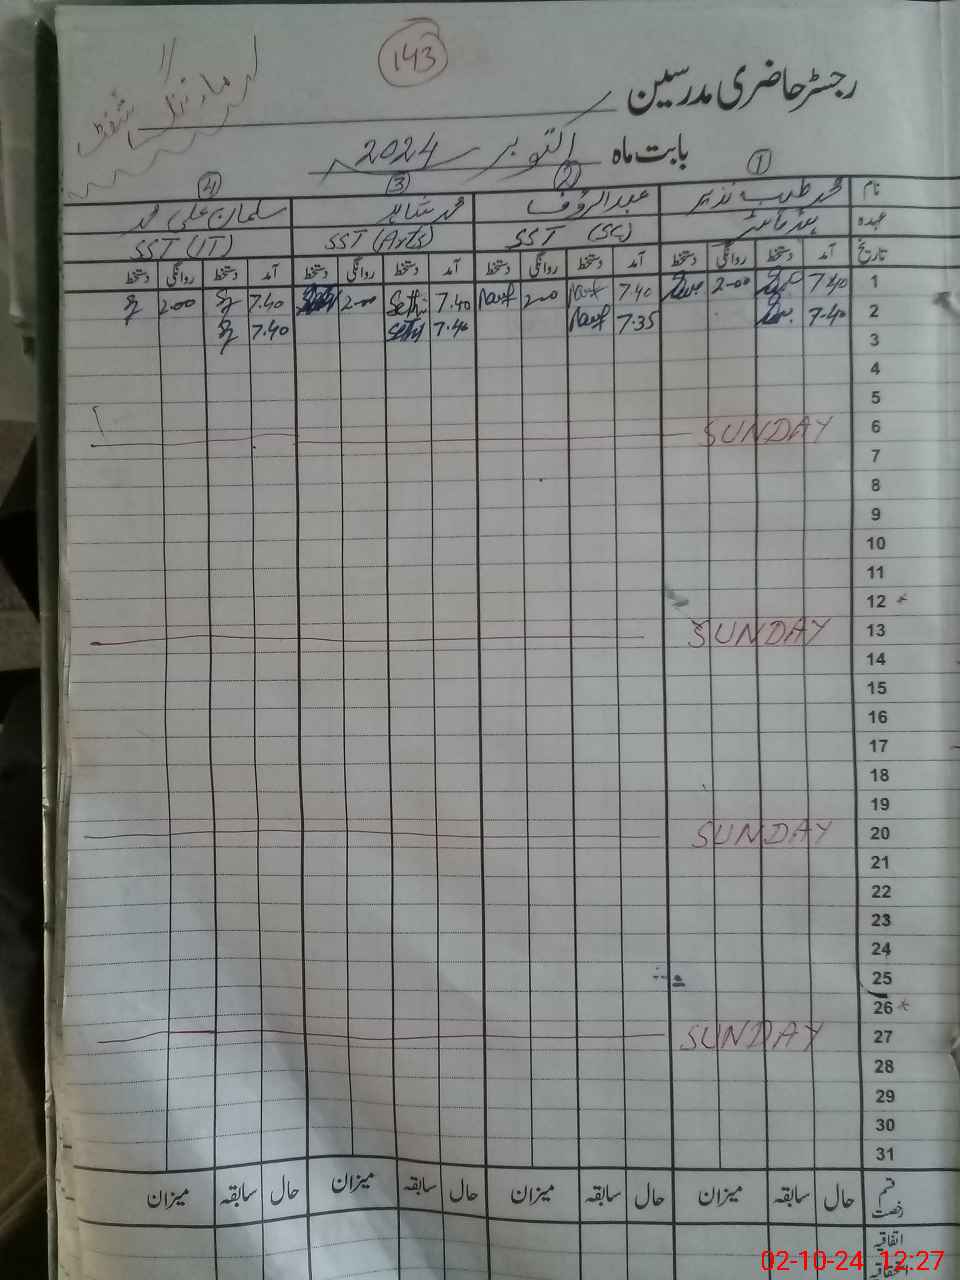 143
مارننگ شفٹ
رجسٹر حاضری مدرسین
بابت ماہ اکتوبر 2024
1 2 3 4
نام محمد طیب نذیر عبدالرؤف محمد شاہد سلمان علی محمد
عہدہ ہیڈ ماسٹر SST (SC) SST (Arts) SST (IT)
تاریخ آمد دستخط روانگی دستخط آمد دستخط روانگی دستخط آمد دستخط روانگی دستخط آمد دستخط روانگی دستخط
1 7.40 2.00 7.40 Rauf 2.00 Rauf 7.40 Sethi 2.00 7.40 2.00
2 7.40 7.35 Rauf 7.40 Sethi 7.40
3
4
5
6 SUNDAY
7
8
9
10
11
12 *
13 SUNDAY
14
15
16
17
18
19
20 SUNDAY
21
22
23
24
25
26 *
27 SUNDAY
28
29
30
31
قسم رخصت حال سابقہ میزان حال سابقہ میزان حال سابقہ میزان حال سابقہ میزان
اتفاقیہ
02-10-24 12:27